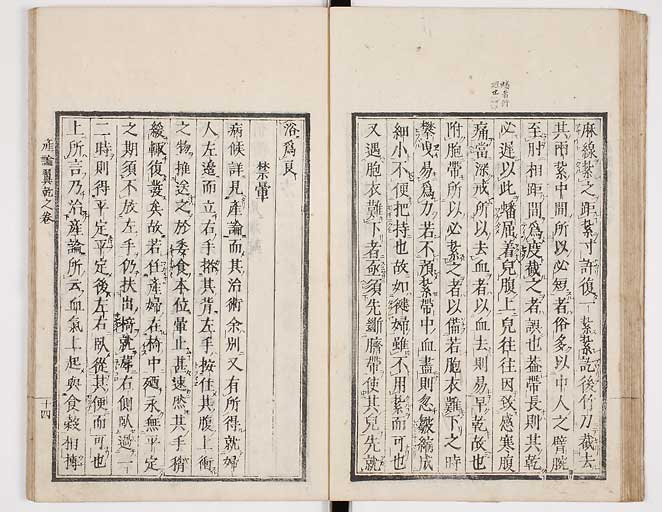 麻線紮之距紮寸許復一紮紮訖後竹刀截去
其兩紮中間所以必短者俗多以中人之臂腕
至肘相距間爲度截之者誤也蓋帶長則其乾
必遲以此蟠屈着兒腹上兒往往因致感寒腹
痛當深戒所以去血者以血去則易早乾故也
附胞帶所以必紮之者以備若胞衣難下之時
攀曳易爲力若不預紮帶中血盡則忽皺縮成
細小不便把持也故如健婦雖不用紮而可也
又遇胞衣難下者亟須先斷臍帶使其兒先就
浴爲良
禁暈
病候詳見產論而其治術余別又有所得就婦
人左邊而立右手搽其背左手按住其腹上衝
之物推送之於委食本位暈止甚速然其手稍
緩輒復發矣故若任產婦在椅中廼永無平定
之期須不放左手仍扶出椅就蓐右側臥過一
二時則得平定平定後左右臥從其便而可也
上所言乃治產論所云血氣上起與食穀相搏
產論翼乾之卷
十四